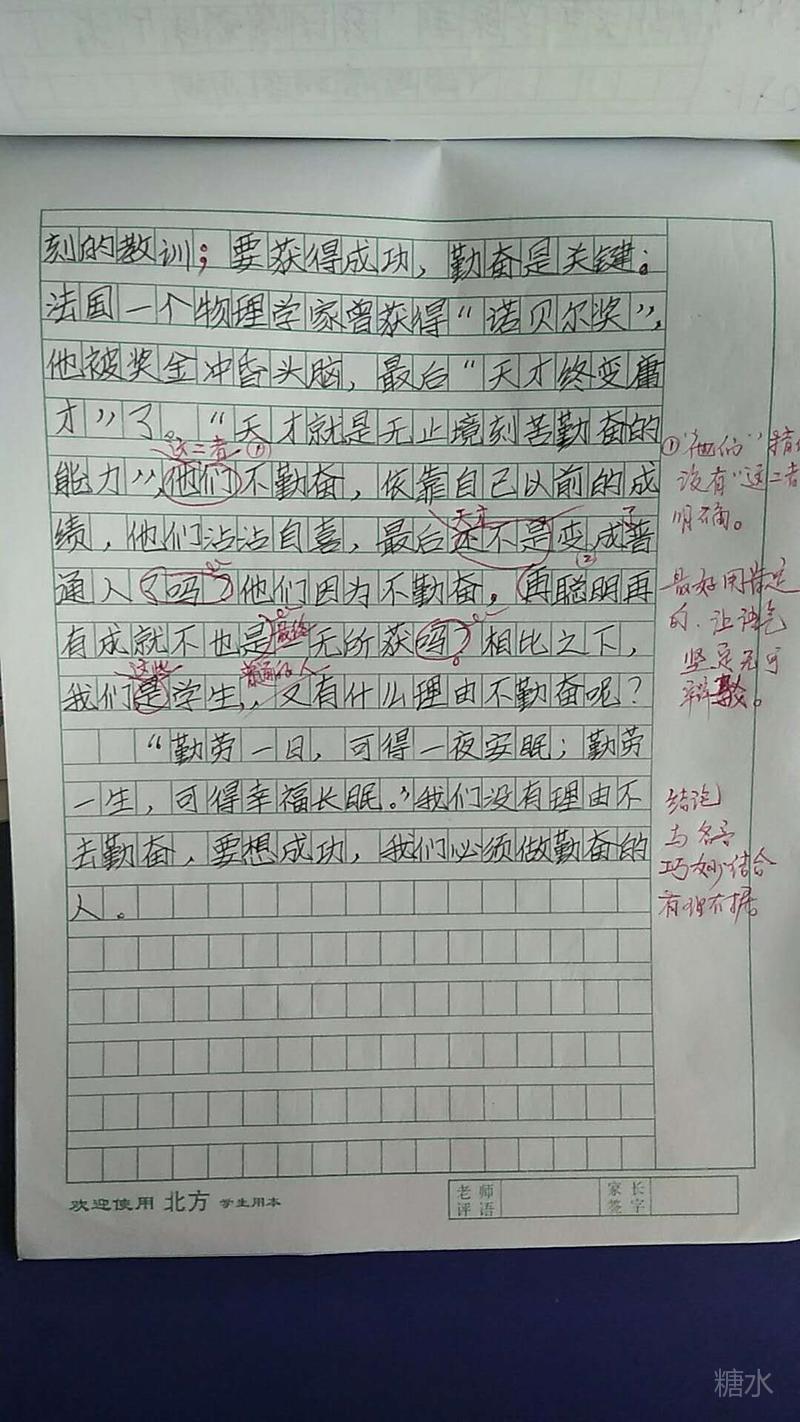 刻的教训；要获得成功，勤奋是关键。
法国一个物理学家曾获得“诺贝尔奖”，
他被奖金冲昏头脑，最后“天才终变庸
才”了。“天才就是无止境刻苦勤奋的
这二者①
能力”，他们不勤奋，依靠自己以前的成
绩，他们沾沾自喜，最后还不是变成普
天才
了
②
通人吗？他们因为不勤奋，再聪明再
有成就不也是无所获吗？相比之下，
最终
这些
普通的人
我们是学生，又有什么理由不勤奋呢？
“勤劳一日，可得一夜安眠；勤劳
一生，可得幸福长眠。”我们没有理由不
去勤奋，要想成功，我们必须做勤奋的
人。
①“他们”指
没有“这二者
明确。
最好用肯定
的，让语气
坚定无可
辩
结论
与名言
巧妙结合
有理有据
欢迎使用 北方 学生用本
老师评语
家长签字
糖水